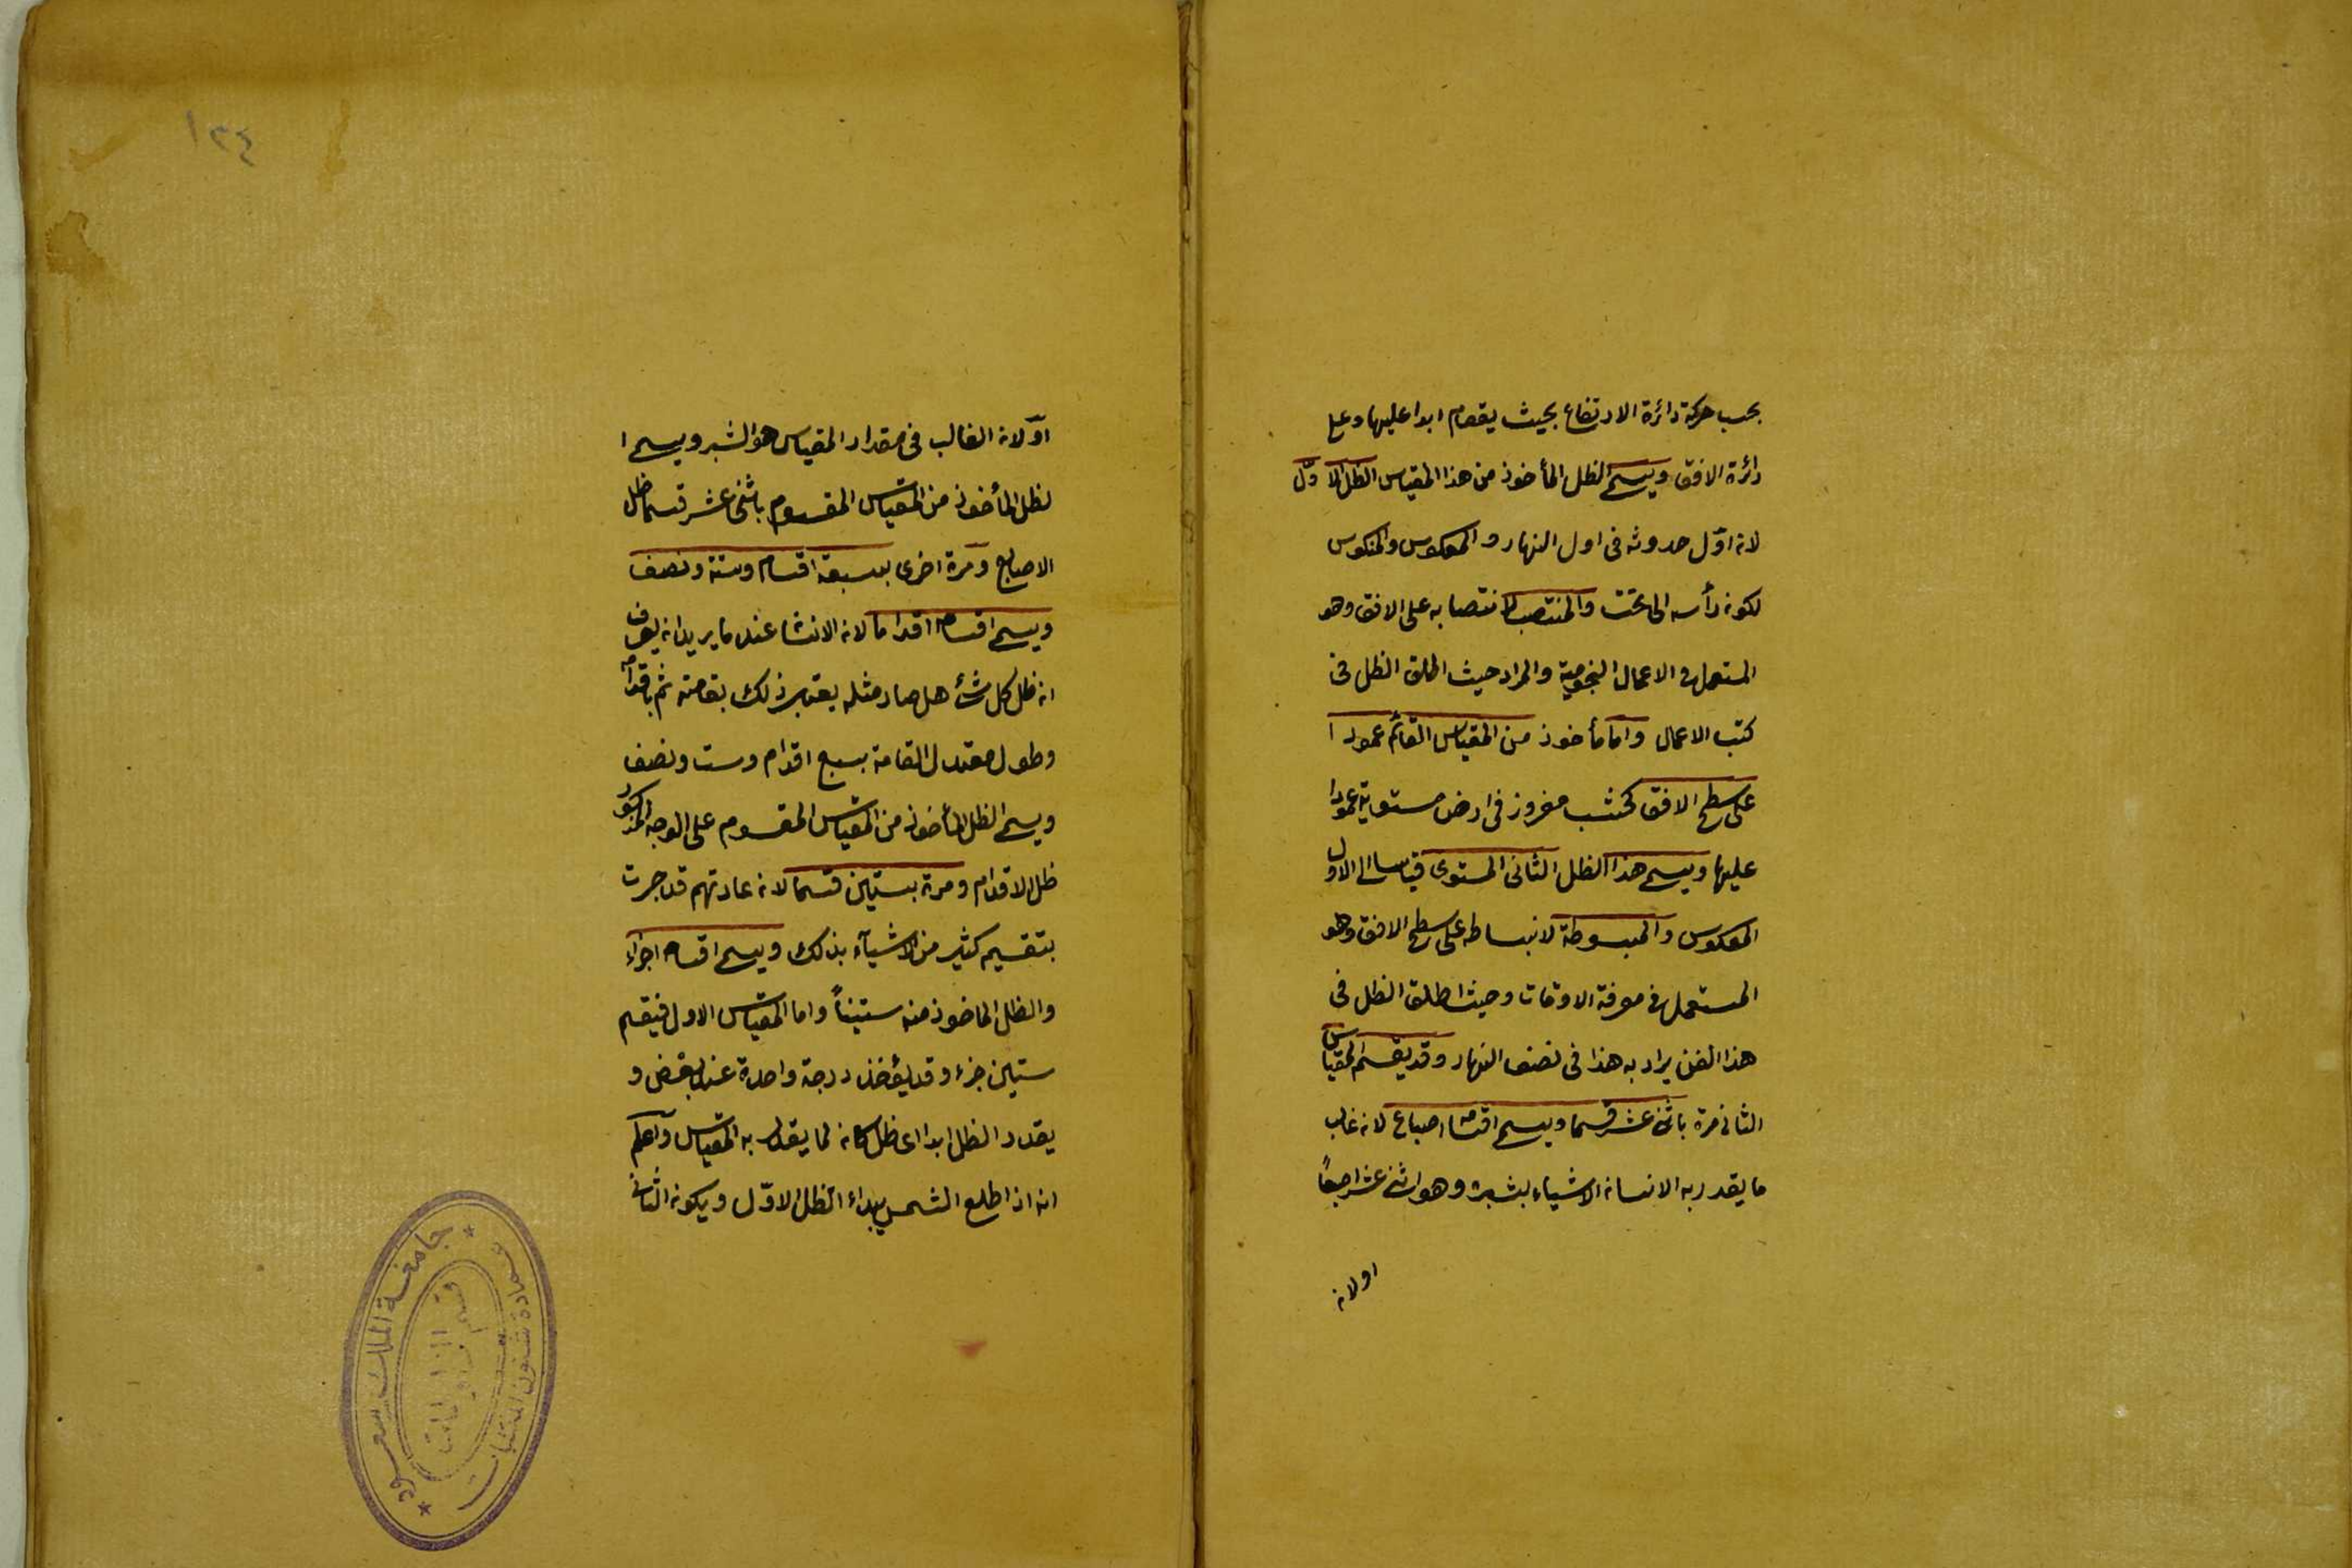 بحسب حركة دائرة الارتفاع بحيث يقوم ابدا عليها وعلى
دائرة الافق ويسمى الظل المأخوذ من هذا المقياس الظل الاوّل
لانه اوّل حدوثه فى اول النهار والمعكوس والمنكوس
لكونه رأسه الى تحت والمنتصب لانتصابه على الافق وهو
المستعمل فى الاعمال النجومية والمراد حيث اطلق الظل فى
كتب الاعمال واما مأخوذ من المقياس القائم عمودا
على سطح الافق كخشب مغروز فى ارض مستوية عمودا
عليها ويسمى هذا الظل الثانى المستوى قياسا الى الاول
المعكوس والمبسوطة لانبساطه على سطح الافق وهو
المستعمل فى معرفة الاوقات وحيث اطلق الظل فى
هذا الفن يراد به هذا فى نصف النهار وقد يقسم المقياس
الثانى مرة باثنى عشر قسما ويسمى اقسامه اصباع لانه غالب
ما يقدر به الانسان الاشياء بشبره وهو اثنى عشر اصبعًا
اولانه
١٢٤
اوّلانه الغالب فى مقدار المقياس هو الشبر ويسمى ا
لظل المأخوذ من المقياس المقسوم باثنى عشر قسما ظل
الاصابع ومرة اخرى بسبعة اقسام وستة ونصف
ويسمى اقسامه اقداما لانه الانسا عند ما يريد انه يعرف
انه ظل كل شئ هل صار مثله يعتبر ذلك بقامته ثم باقدامه
وطول معتدل القامة بسبع اقدام وست ونصف
ويسمى الظل المأخوذ من المقياس المقسوم على الوجه المذكور
ظل الاقدام ومرة بستين قسما لانه عادتهم قد جرت
بتقسيم كثير من الاشيآء بذلك ويسمى اقسامه اجزاء
والظل الماخوذ منه ستينياً واما المقياس الاول فيقسم
ستين جزء وقد يؤخذ درجة واحدة عند البعض و
يقدر الظل ابدا اى ظل كانه لما يقدر به المقياس واعلم
انه اذا طلع الشمس يبداء الظل الاوّل ويكونه الثانى
جامعة الملك سعود
عمادة شئون المكتبات
قسم المخطوطات